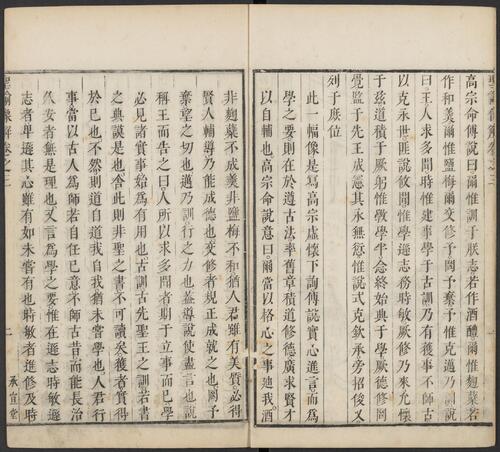 高宗命傅說曰爾惟訓于朕志若作酒醴爾惟麴糵若
作和羹爾惟鹽梅爾交修予罔予棄予惟克邁乃訓說
曰王人求多聞時惟建事學于古訓乃有獲事不師古
以克永世匪說攸聞惟學遜志務時敏厥修乃來允懷
于茲道積于厥躬惟斆學半念終始典于學厥德修罔
覺監于先王成憲其永無愆惟說式克欽承旁招俊乂
列于庶位
此一幅像是寫高宗虛懷下詢傅說實心進言而為
學之要則在於遵古法率舊章積道修德廣求賢才
以自輔也高宗命說意曰爾當以格心之事廸我酒
非麹糵不成羹非鹽梅不和猶人君雖有美質必得
賢人輔導乃能成德也交修者規正成就之也罔予
棄望之切也邁乃訓行之力也葢導說使盡言也說
稱王而告之曰人所以求多聞者期于立事而已學
必見諸實事始為有用也古訓古先聖王之訓若書
之典謨是也舍此則非聖之書不可讀矣獲者實得
於已也不然則道自道我自我猶未嘗學也人君行
事當以古人為師若自任已意不師古昔而能長治
久安者無是理也又言為學之要惟在遜志時敏遜
志者卑遜其心雖有如未嘗有也時敏者進修及時
聖諭像解卷之三
二
承宣堂